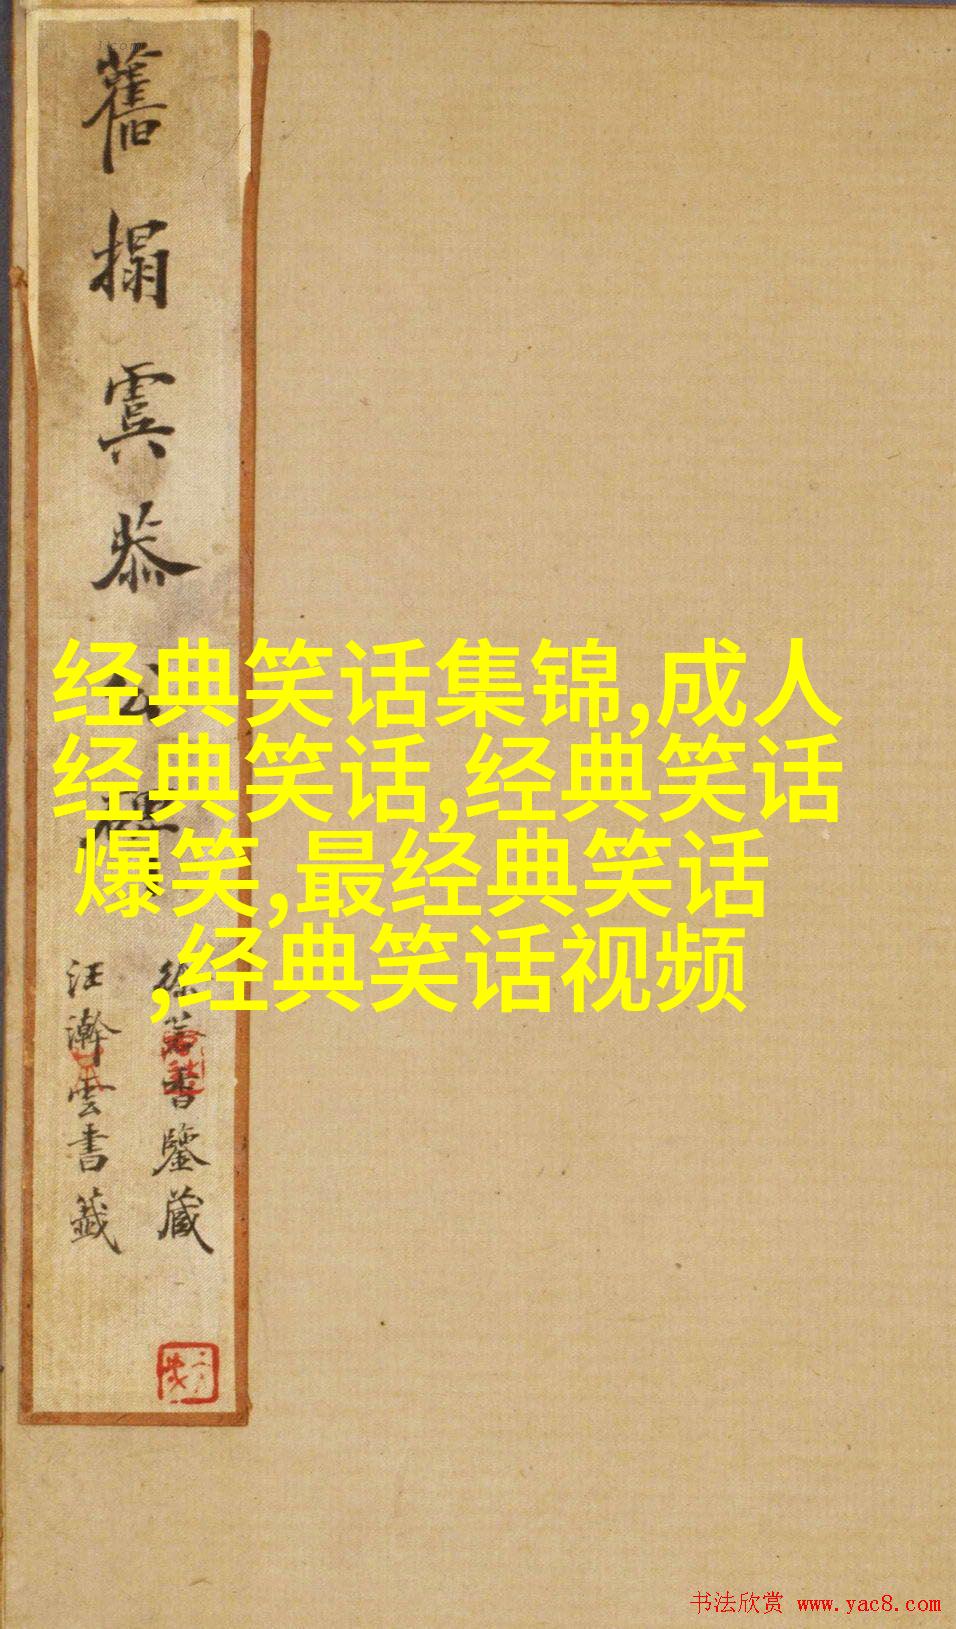 舊搨虞恭公碑
徐若書鑒藏
汪瀚雲書籤
经典笑话集锦,成人
经典笑话,经典笑话
爆笑,最经典笑话
,经典笑话视频
书法欣赏 www.yac8.com